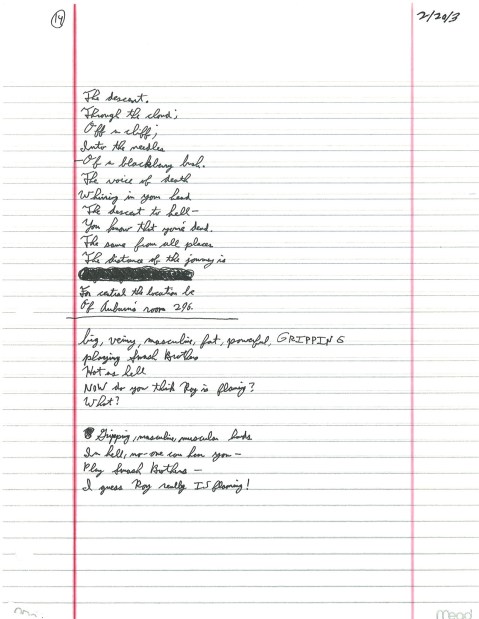 14
2/20/3
The descent.
Through the cloud;
Off a cliff;
Into the needles
-Of a blackberry bush.
The voice of death
Whining in your head
The descent to hell-
You know that you're dead.
The same from all places
The distance of the journey is
For central the location be
Of Auburn's room 296.
big, veiny, masculine, fat, powerful, GRIPPING
playing Smash Brothers
Hot as hell
NOW do you think Roy is flaming?
What?
Gripping, masculine, muscular hands
In hell, no-one can hear you-
Play Smash Brothers-
I guess Roy really IS flaming!
Mead